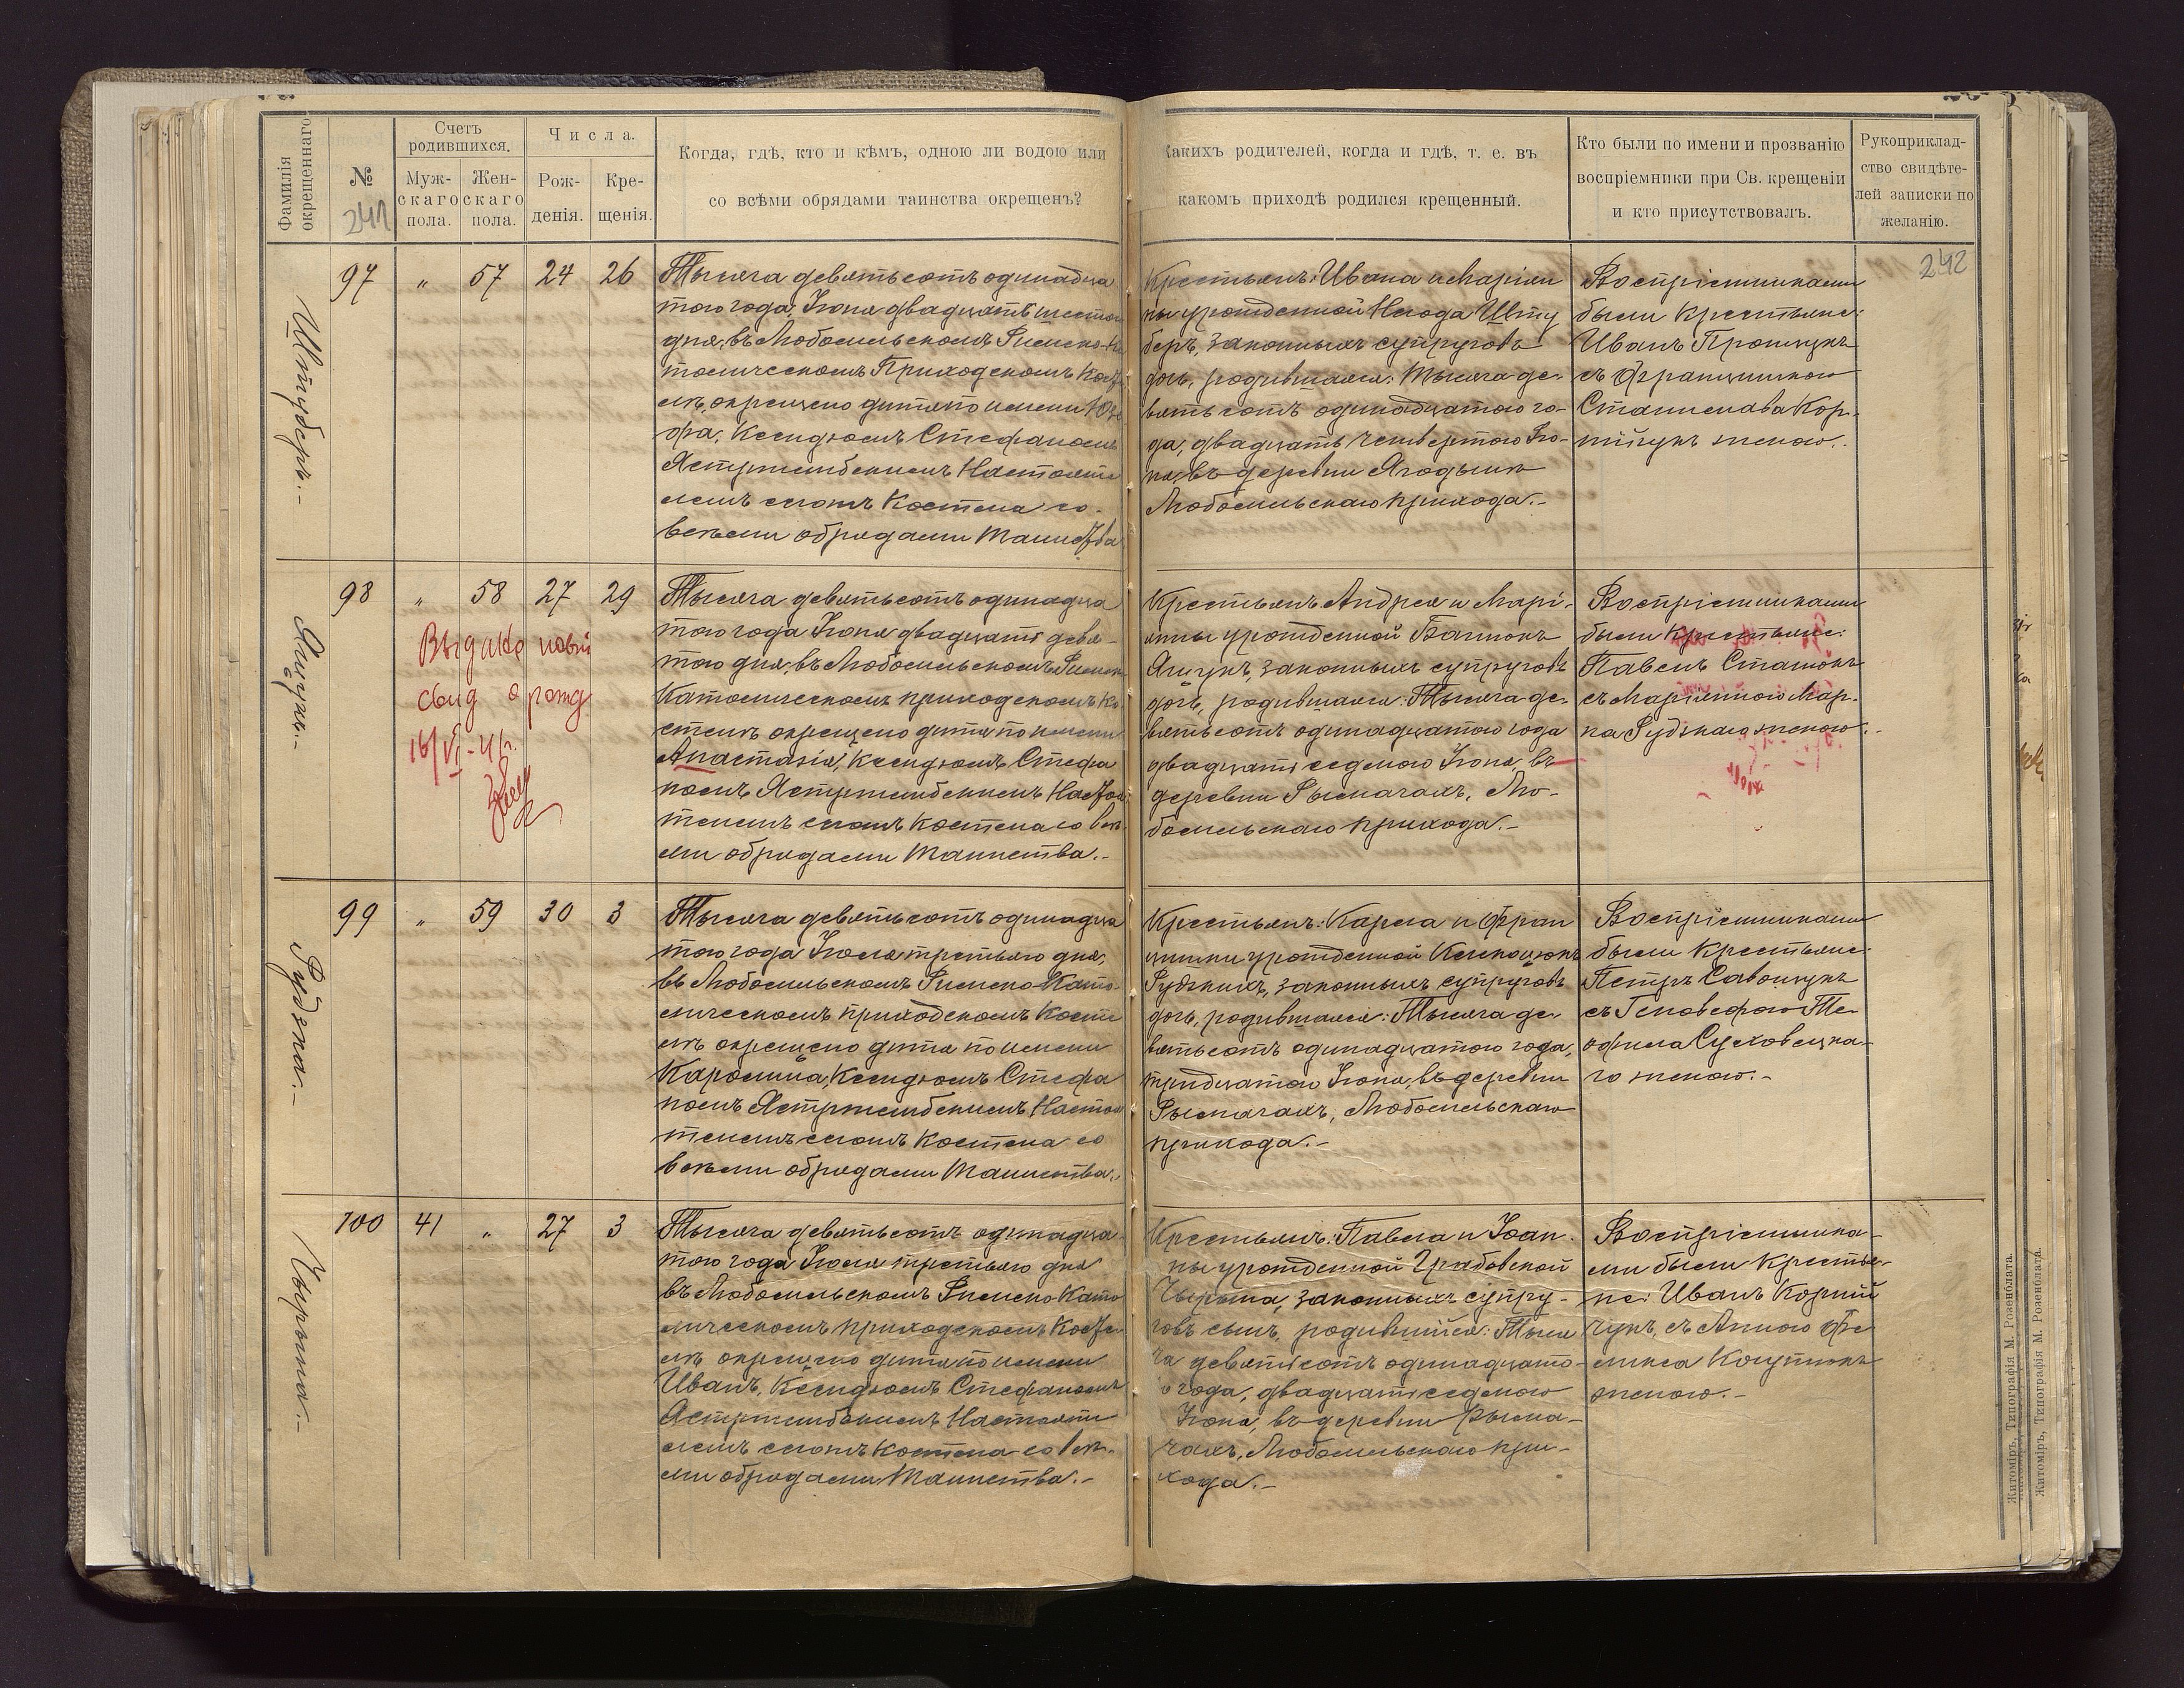 Фамилія окрещеннаго
№
241
Счетъ родившихся.
Муж-
скаго
пола.
Жен-
скаго
пола.
Числа.
Рож-
денія.
Кре-
щенія.
Когда, гдѣ, кто и кѣмъ, одною ли водою или
со всѣми обрядами таинства окрещенъ?
Какихъ родителей, когда и гдѣ, т. е. въ
какомъ приходѣ родился крещенный.
Кто были по имени и прозванію
воспріемники при Св. крещеніи
и кто присутствовалъ.
Рукоприклад-
ство свидѣте-
лей записки по
желанію.
242
Штуберъ.-
97 " 57 24 26
Тысяча девятьсотъ одинадца
того года, Іюня двадцать шестого
дня, въ Любомльскомъ Римско-Ка
толическомъ Приходскомъ Кост
елѣ, окрещено дитя по имени Юзе
фа, Ксендзомъ Стефаномъ
Ястржембскимъ Настояте
лемъ сего Костела со
всѣми обрядами Таинства
Крестьянъ: Ивана и Маріян
ны урожденной Нагода Шту
беръ, законныхъ супруговъ
дочь, родившаяся: Тысяча де-
вятьсотъ одинадцатого го-
да, двадцать четвертого Ію-
ня, въ деревни Ягодынѣ
Любомльскаго прихода.-
Воспріемниками
были Крестьяне:
Иванъ Процукъ
съ Францишкою
Станислава Кор-
нійчукъ женою.
Яцукъ.-
98 " 58 27 29
Выдано новый
свид о рожд
16/VI-41г.
Тысяча девятьсотъ одинадца
того года Іюня двадцать девя-
того дня, въ Любомльскомъ Римск
Католическомъ приходскомъ Ко
стелѣ окрещено дитя по имени
Анастазія, Ксендзомъ Стефа
номъ Ястржембскимъ Настоя
телемъ сего Костела со всѣ
ми обрядами Таинства.-
Крестьянъ Андрея и Марі-
янны урожденной Бацюкъ
Яцукъ, законныхъ супруговъ
дочь, родившаяся: Тысяча де-
вятьсотъ одинадцатого года
двадцать седмого Іюня, въ
деревни Рымачахъ, Лю-
бомльскаго прихода.-
Воспріемниками
были Крестьяне:
Павелъ Сташукъ
съ Маріянною Мар-
ка Рудзкаго женою.-
Рудзка.-
99 " 59 30 3
Тысяча девятьсотъ одинадца
того года Іюля третьяго дня,
въ Любомльскомъ Римско-Като-
лическомъ приходскомъ Косте
лѣ окрещено дитя по имени
Каролина, Ксендзомъ Стефа
номъ Ястржембскимъ Настоя
телемъ сего Костела со
всѣми обрядами Таинства.
Крестьянъ: Карла и Фран
цишки урожденной
Рудзкихъ, законныхъ супруговъ
дочь, родившаяся: Тысяча де-
вятьсотъ одинадцатого года,
тридцатого Іюня, въ деревни
Рымачахъ, Любомльскаго
прихода.-
Воспріемниками
были Крестьяне:
Петръ Савощукъ
съ Геновефою Те-
офила Суховецка-
го женою.-
100 41 " 27 3
Тысяча девятьсотъ одинадца
того года Іюля третьяго дня
въ Любомльскомъ Римско Като
лическомъ приходскомъ Косте
лѣ окрещено дитя по имени
Иванъ, Ксендзомъ Стефаномъ
Ястржембскимъ Настояте
лемъ сего Костела со всѣ-
ми обрядами Таинства.-
Крестьянъ: Павла и Іоан-
ны урожденной Грабовской
законныхъ супру-
говъ сынъ, родившійся: Тыся
ча девятьсотъ одинадцато-
го года, двадцать седмого
Іюня, въ деревни Рыма-
чахъ, Любомльскаго при-
хода.-
Воспріемника-
ми были Крестья-
не: Иванъ Корній
чукъ, съ Анною Фе
ликса Коцунюкъ
женою.-
Житоміръ, Типографія М. Розенблата.
Житоміръ, Типографія М. Розенблата.